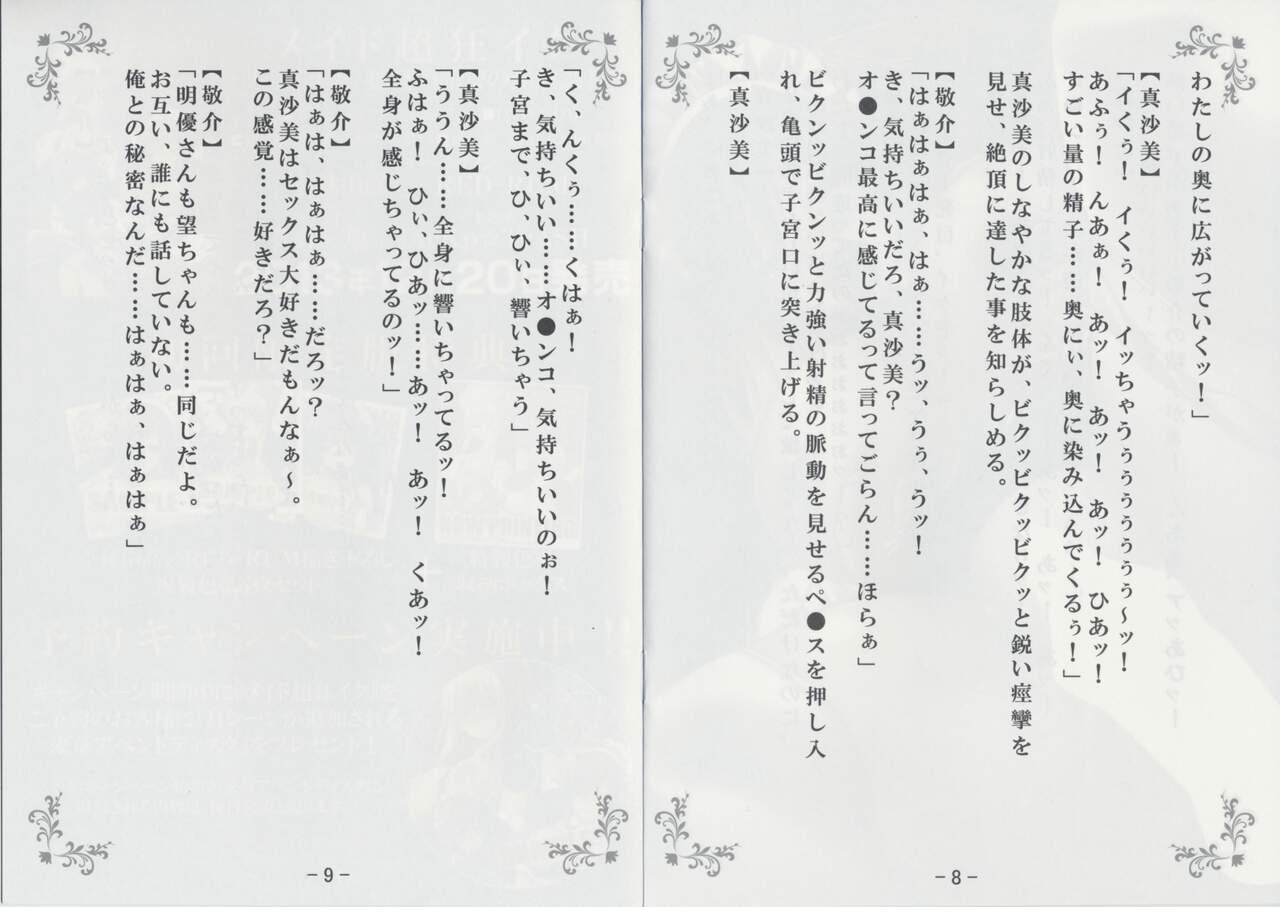 わたしの奥に広がっていくッ！」
【真沙美】
「イくぅ！　イくぅ！　イッちゃうぅぅぅぅぅぅぅ～ッ！
あふぅ！　んあぁ！　あッ！　あッ！　あッ！　ひあッ！
すごい量の精子……奥にぃ、奥に染み込んでくるぅ！」
真沙美のしなやかな肢体が、ビクッビクッビクッと鋭い痙攣を
見せ、絶頂に達した事を知らしめる。
【敬介】
「はぁはぁはぁ、はぁ……うッ、うぅ、うッ！
き、気持ちいいだろ、真沙美？
オ●ンコ最高に感じてるって言ってごらん……ほらぁ」
ビクンッビクンッと力強い射精の脈動を見せるペ●スを押し入
れ、亀頭で子宮口に突き上げる。
【真沙美】
－8－
「く、んくぅ……くはぁ！
き、気持ちいい……オ●ンコ、気持ちいいのぉ！
子宮まで、ひ、ひぃ、響いちゃう」
【真沙美】
「ううん……全身に響いちゃってるッ！
ふはぁ！　ひぃ、ひあッ……あッ！　あッ！　くあッ！
全身が感じちゃってるのッ！」
【敬介】
「はぁは、はぁはぁ……だろッ？
真沙美はセックス大好きだもんなぁ～。
この感覚……好きだろ？」
【敬介】
「明優さんも望ちゃんも……同じだよ。
お互い、誰にも話していない。
俺との秘密なんだ……はぁはぁ、はぁはぁ」
－9－